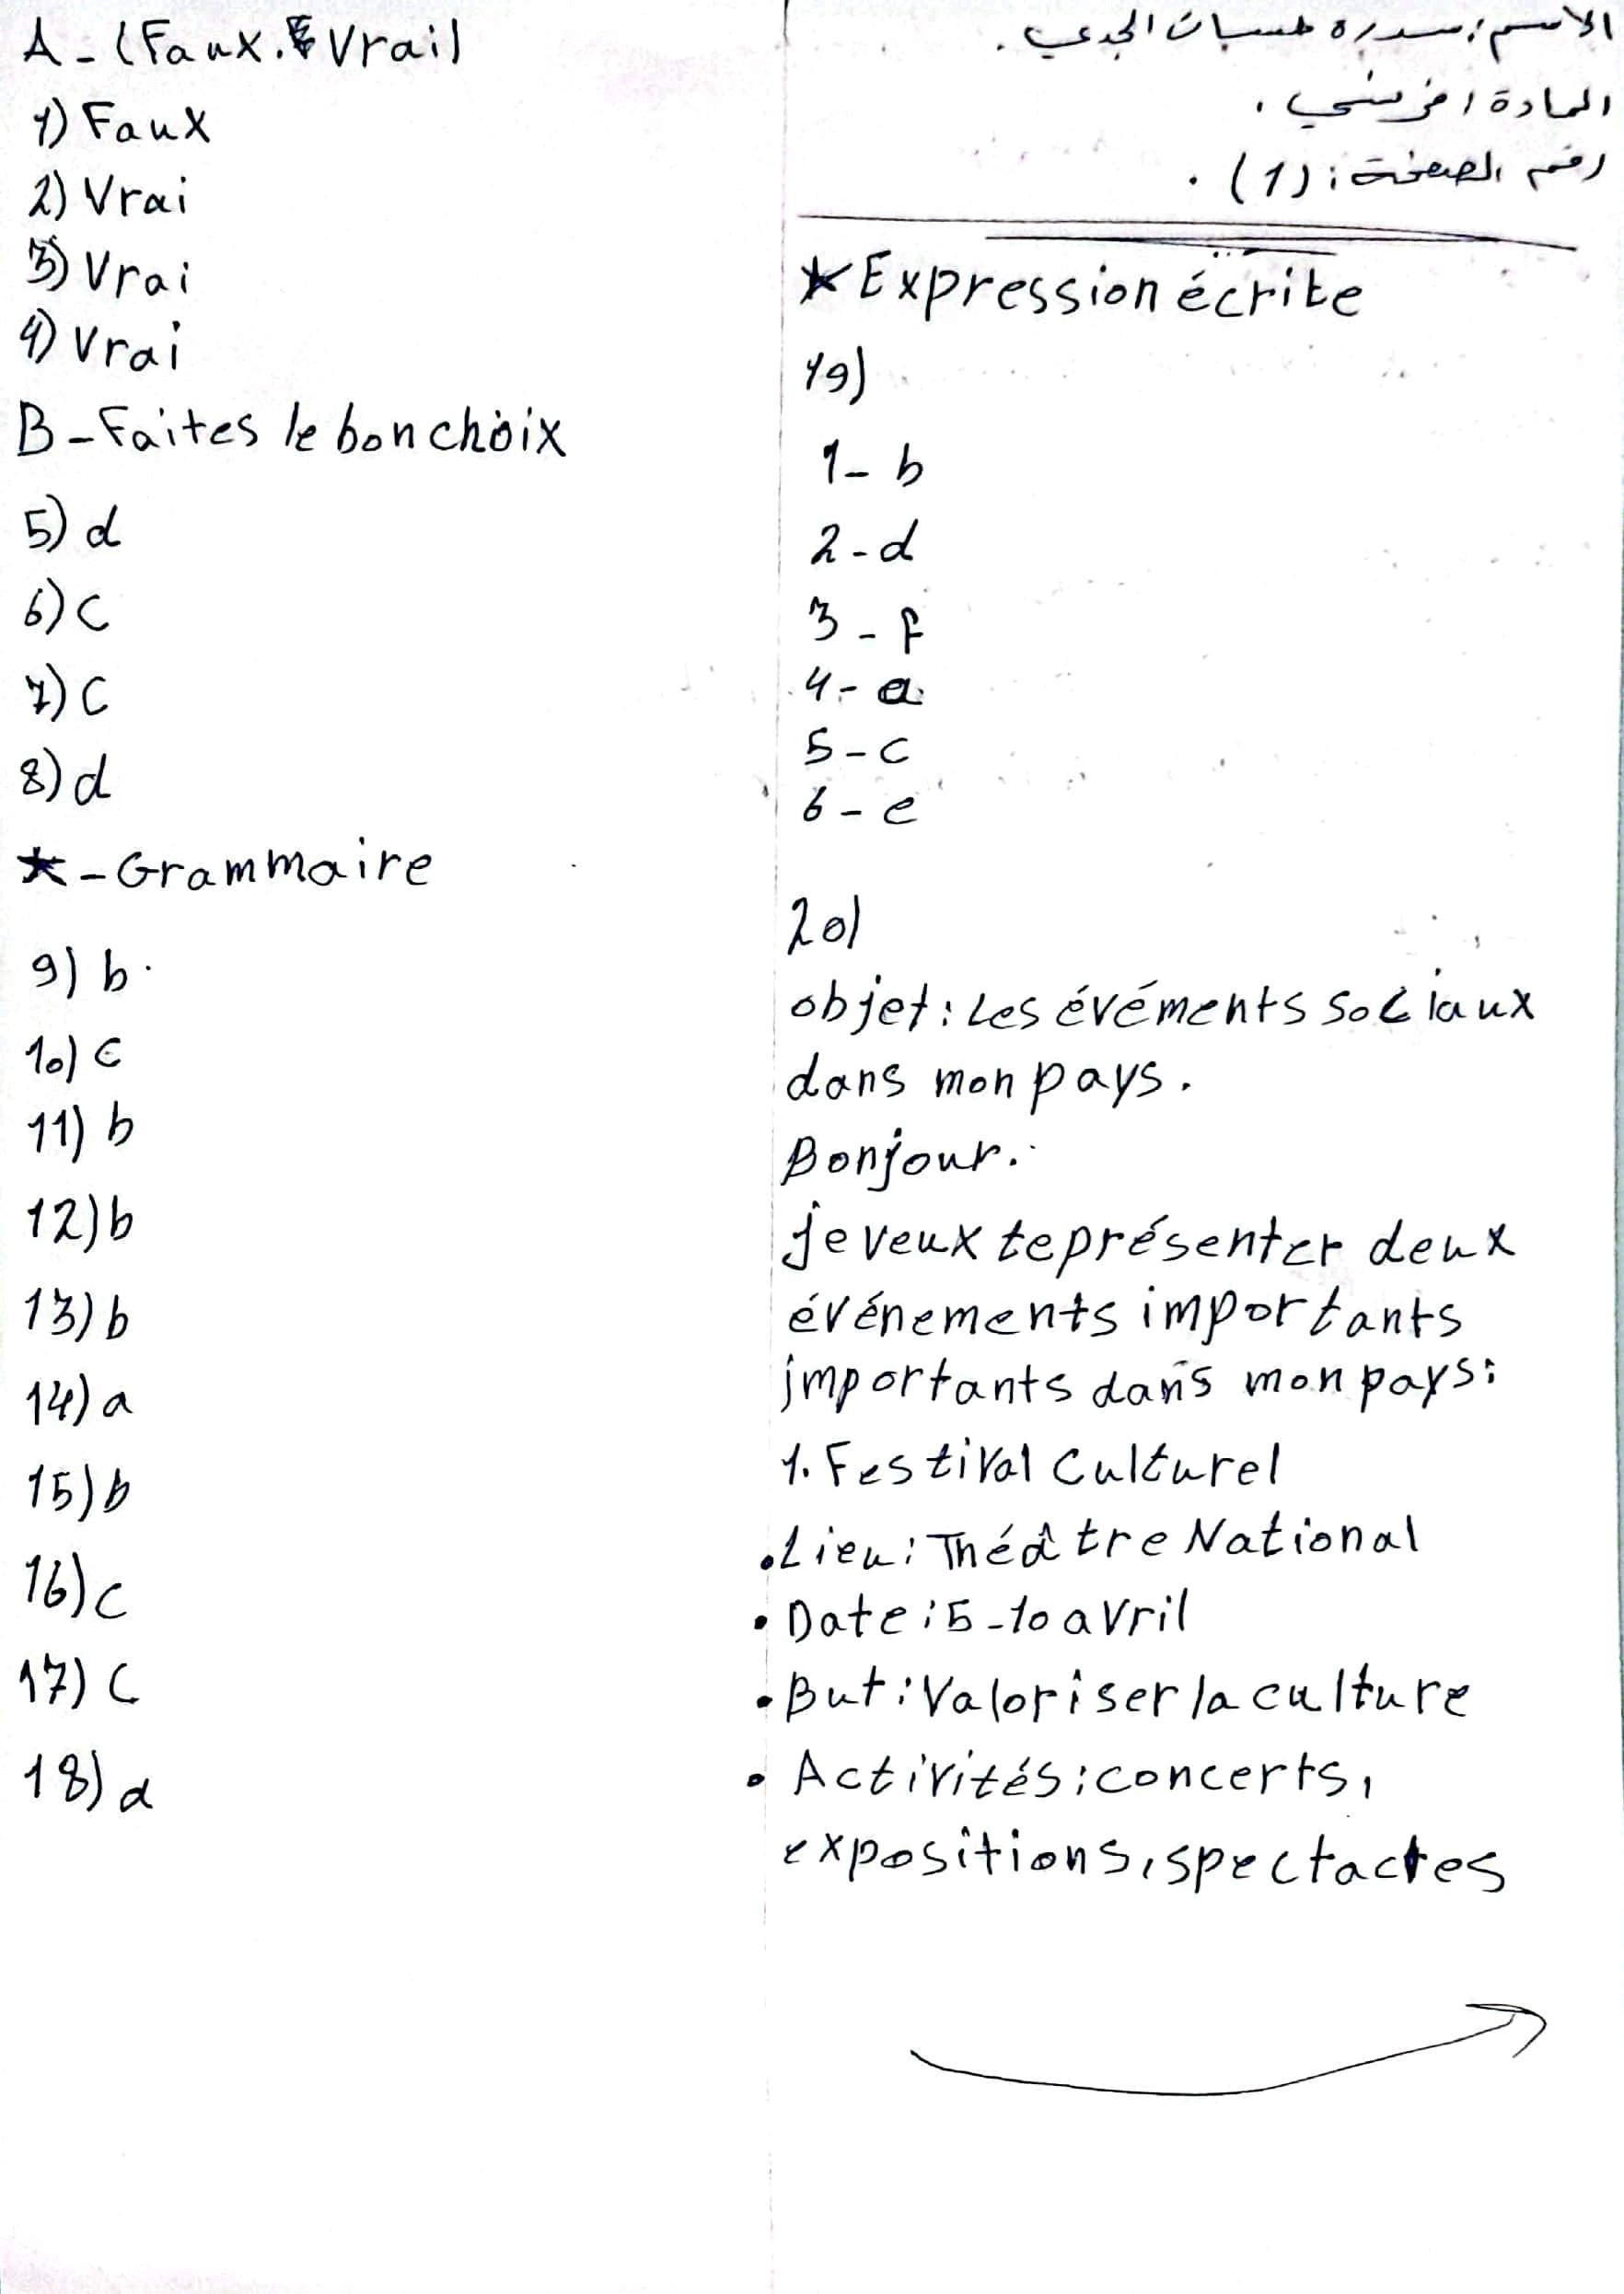 A - (Faux. Vrai)
1) Faux
2) Vrai
3) Vrai
4) Vrai
B - Faites le bon choix
5) d
6) C
7) C
8) d
★ - Grammaire
9) b.
10) c
11) b
12) b
13) b
14) a
15) b
16) c
17) C
18) d
الاسم: سدرة حسان الجدي.
المادة: فرنسي.
رقم الصفحة: (1).
★ Expression écrite
19)
1 - b
2 - d
3 - f
4 - a
5 - c
6 - e
20)
objet: Les événements sociaux
dans mon pays.
Bonjour.
je veux te présenter deux
événements importants
importants dans mon pays:
1. Festival Culturel
• Lieu: Théâtre National
• Date: 5-10 avril
• But: Valoriser la culture
• Activités: concerts,
expositions, spectactes